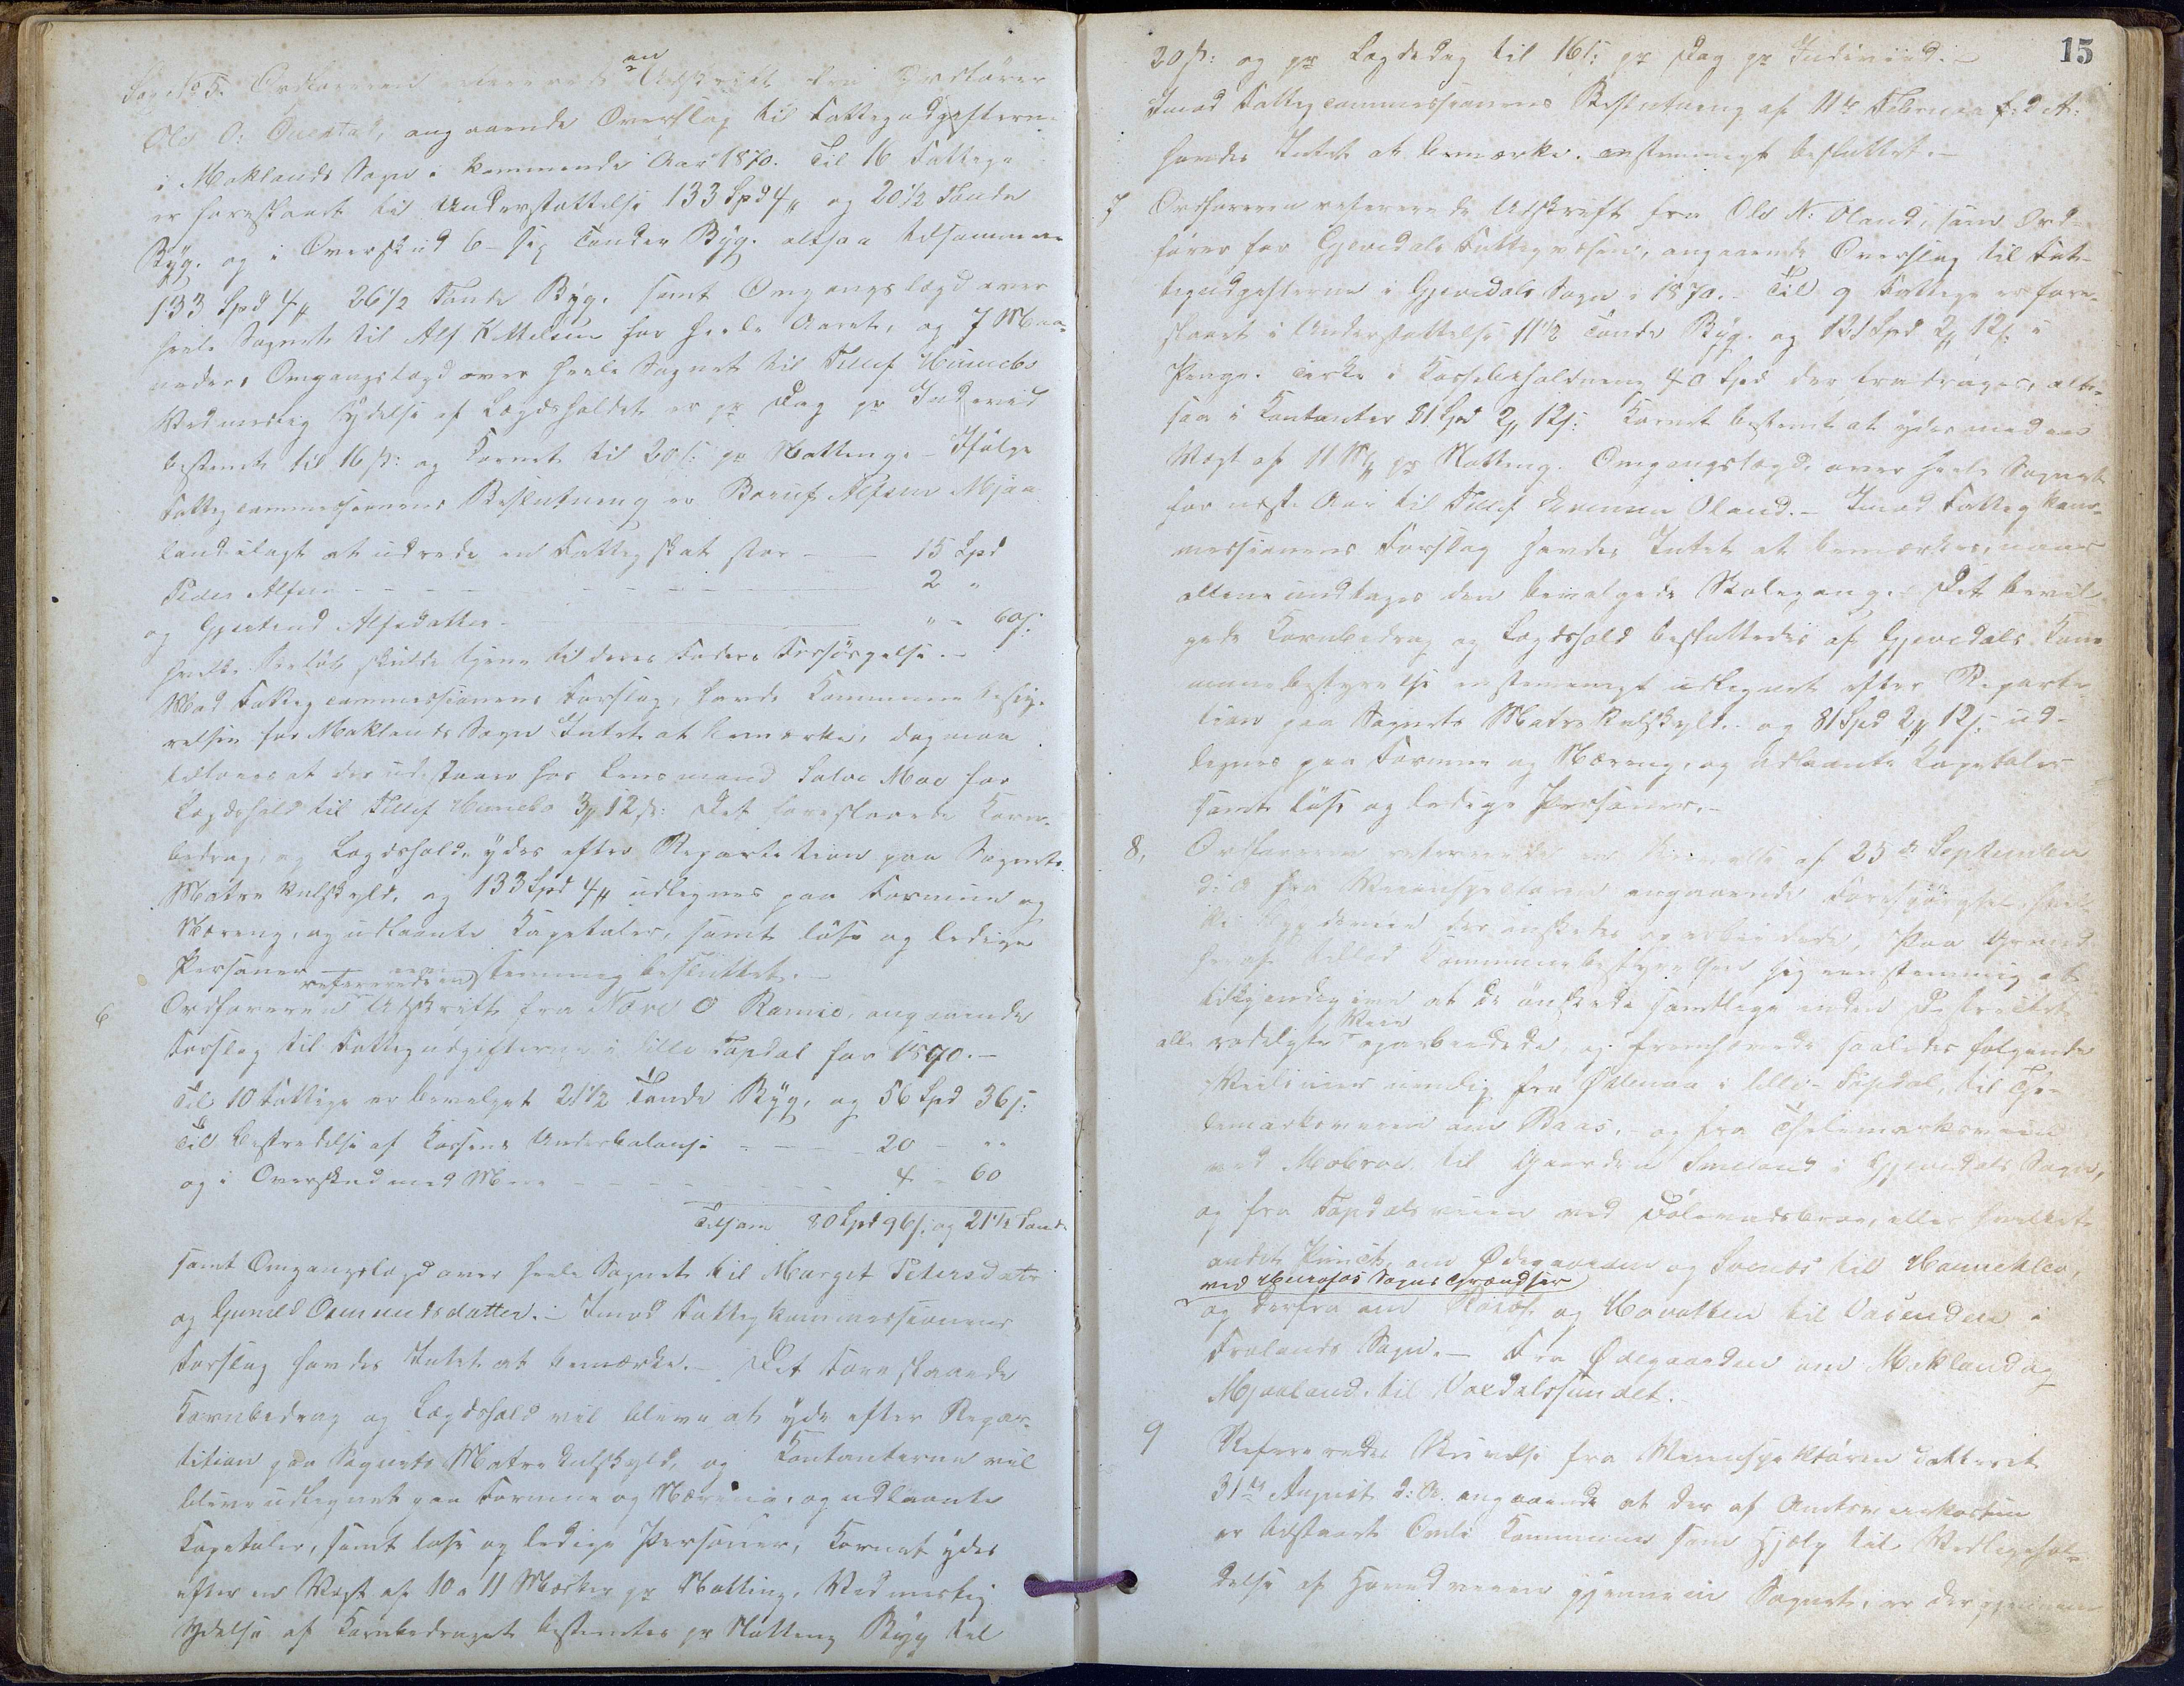 Sag No 5. Ordføreren refererede en Udskrivt fra Ordfører
Ole O: Ovelstad, angaaende Overslag til Fattigudgifterne
i Moklands Sogn i kommende Aar 1870. Til 16 Fattige
er foreslaaet til Understøttelse 133 Spd 4 " og 20 1/2 Tønde
Byg. og i Overskud 6 - sex Tønder Byg. altsaa tilsammen
133 Spd 4 " 26 1/2 Tønde Byg. samt Omgangslægd over
heele Sognet til Alf Kittelsen for heele Aaret, og 7 Maa-
neders Omgangslægd over heele Sognet til Tellef Hinnebo
Vedmedlig Ydelse af Lægdsholdet er pr Dag pr Individ
bestemt til 16 s: og Kornet til 20 s: pr Notting - Ifølge
Fattigcommissionens Beslutning er Boruf Alfsen Mjaa-
land ilagt at udrede en Fattigskat stor — 15 Spd
Peder Alfsen - - - - - - - 2 "
og Gjertrud Alfsdatter - " - 60 s:
hvilke Beløb skulde tjene til deres Faders Forsørgelse. -
Mod Fattigcommissionens Forslag, havde Kommunebesty-
relsen for Moklands Sogn Intet at bemærke, dog maa
tilføies at der udestaaer hos Lensmand Salve Moe for
Lægdshold til Tellef Hinnebo 3 " 12 s: Det foreslaaede Korn-
bedrag, og Lægdshold, ydes efter Repartetion paa Sognets
Matrekulskyld, og 133 Spd 4 " udlignes paa Formue og
Næreng, og udlaante Kapetaler, samt løse og ledige
Personer — eenstemmig besluttet. -
6 Ordføreren refererede en Udskrivt fra Tarel O Ramse, angaaende
Forslag til Fattigudgifterne i lille Topdal for 1870. -
Til 10 Fattige er bevelget 21 1/2 Tønde Byg, og 56 Spd 36 s:
Til Bestredelse af Kassens Underbalanse - - - 20 - "
og i Overskud med M - - - - - 4 - 60
Tilsam 80 Spd 96 s: og 21 1/2 Tønde
samt Omgangslægd over heele Sognet til Marget Petersdatr
og Gunild Osmundsdatter. - Imod Fattigkommissionens
Forslag havdes Intet at bemærke. - Det foreslaaede
Kornbedrag og Lægdshold vil blive at yde efter Repar-
tition paa Sognets Matrekulskyld, og Kontanterne vil
blive udlignet paa Formue og Næring, og udlaante
Kapetaler, samt løse og ledige Personer, Kornet ydes
efter en Vægt af 10 a 11 Mærker pr Notting. Vedmestig
Ydelse af Kornbedraget bestemtes pr Notting Byg til
15
20 s: og pr Lægdsdag til 16 s: pr Dag pr Indeviid. -
Imod Fattigcommissionens Beslutning af 11te Februar d: A:
havdes Intet at bemærke. enstemmigt besluttet. -
7 Ordføreren refererede Udskrift fra Ole N: Oland, som Ord-
fører for Gjevedals Fattigvæsen, angaaende Overslag til Fat-
tigudgifterne i Gjevedals Sogn i 1870. - Til 9 Fattige er fore-
slaaet i Understøttelse 11 1/2 Tønde Byg. og 121 Spd 2 " 12 s: i
Penge. I Kassebeholdning 40 Spd der fradrages, alt-
saa i Kontanter 81 Spd 2 " 12 s: Kornet bestemt at ydes med en
Vægt af 11 pr Notting. Omgangslægd, over heele Sognet
for næste Aar til Tellef Evensen Oland. - Imod Fattigkom-
missionens Forslag havdes Intet at bemærkes, naar
allene undtages den bevelgede Skolegang. - Det bevil-
gede Kornbedrag og Lægdshold besluttedes af Gjevedals Kom-
munebestyrelse enstemmigt udlegnet efter Reparte-
tion paa Sognets Matrekulskyld. - og 81 Spd 2 " 12 s: ud-
legnes paa Formue og Næring, og udlaante Kapetaler
samt løse og ledige Personer. -
8, Ordføreren refererede en Skrivelse af 25de September
d: A: fra Veiinspectøren angaaende Forespørgsel, hvil-
ke Bygdeveie der ønskedes oparbeidede, Paa Grund
heraf tillod Kommunebestyrelsen sig eenstemmig at
tilkjendegive at de ønskede samtlige inden Destrectet
alle rodelgte Veie oparbeidede, og fremhævede saaledes følgende
Veilinier nemlig fra Østenaa i lille-Topdal, til The-
lemarksveien om Baas, - og fra Thelemarksveien
ved Mobroe til Gaarden Smeland i Gjevedals Sogn,
og fra Topdalsveien ved Dølemadsbroe, eller hvilket
andet Punct, om Ødegaarden og Svenes til Hannekleo,
ved Herefos Sogns Grændser
og derfra om og Hovatten til Vasenden i
Frolands Sogn. - Fra Ødegaarden om Mokland og
Mjaaland, til Voedalssundet.
9 Refereredes Skrivelse fra Veiinspektøren datteret
31te August d: A. angaaende at der af Amtsveikassen
er tilstaaet Omli Kommune som Hjelp til Vedligehol-
delse af Hovedveien gjennem Sognet, er der gjennem